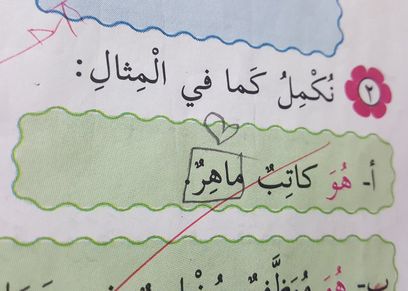 ٢ نُكْمِلُ كَما في الْمِثالِ:
أ- هُوَ كاتِبٌ ماهِرٌ.
ب- هُوَ مُوَظَّفٌ